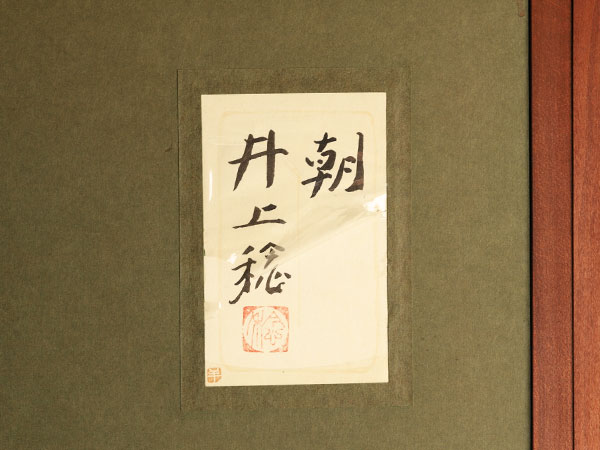 朝
井上稔